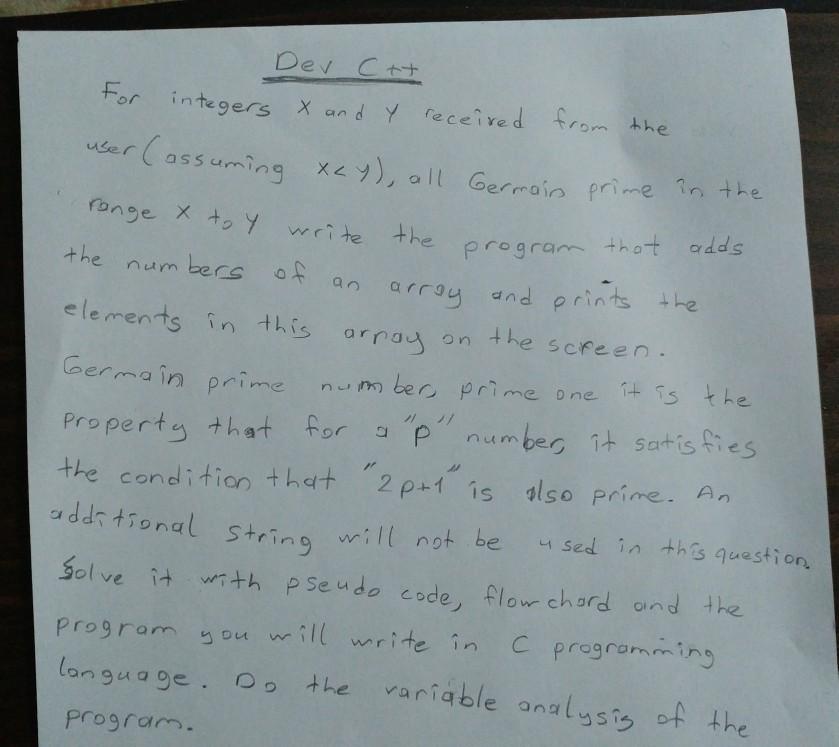 Dev C++
For integers X and Y received from the
user (assuming x<y), all Germain prime in the
range X to Y write the program that adds
the numbers of an array and prints the
elements in this array on the screen.
Germain prime number, prime one it is the
property that for a "p" number, it satisfies
the condition that "2p+1" is also prime. An
additional string will not be used in this question.
Solve it with pseudo code, flow chord and the
program you will write in C programming
language. Do the variable analysis of the
program.